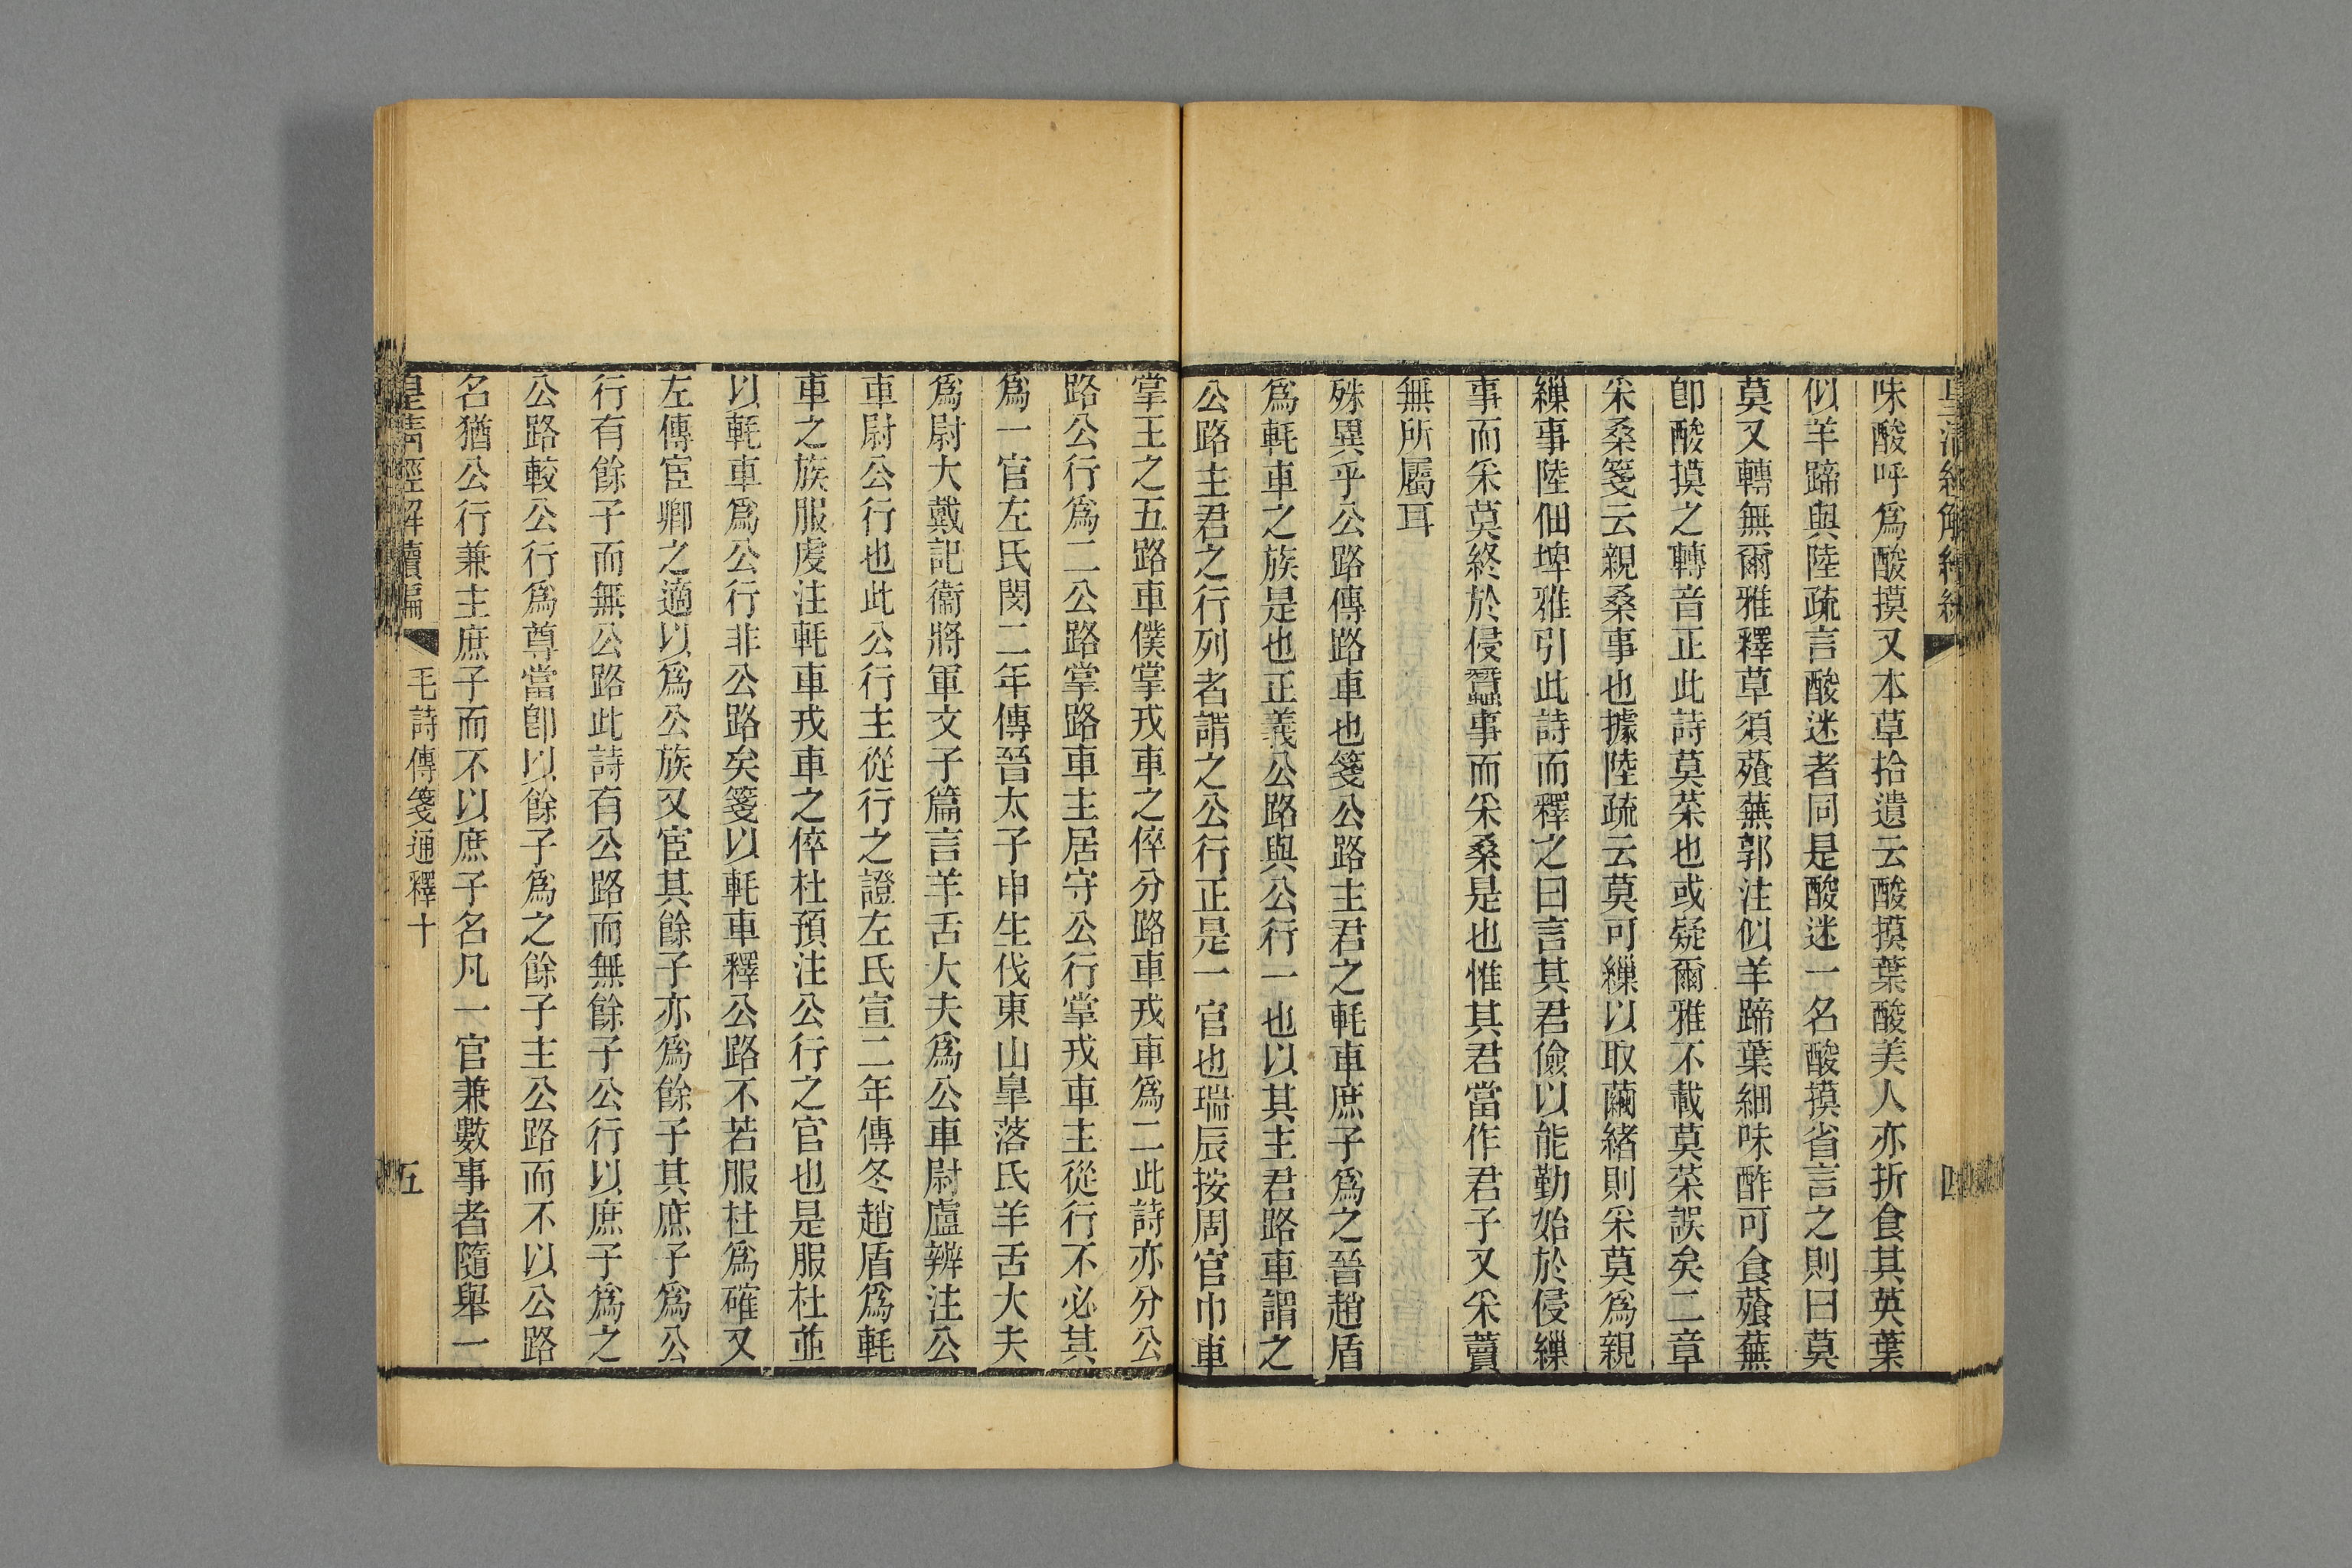 皇清經解續編
四
味酸呼爲酸摸又本草拾遺云酸摸葉酸美人亦折食其英葉
似羊蹄與陸疏言酸迷者同是酸迷一名酸摸省言之則曰莫
莫又轉無爾雅釋草須薞蕪郭注似羊蹄葉細味酢可食薞蕪
卽酸摸之轉音正此詩莫菜也或疑爾雅不載莫菜誤矣二章
采桑箋云親桑事也據陸疏云莫可繅以取繭緒則采莫爲親
繅事陸佃埤雅引此詩而釋之曰言其君儉以能勤始於侵繅
事而采莫終於侵蠶事而采桑是也惟其君當作君子又采藚
無所屬耳
殊異乎公路傳路車也箋公路主君之軞車庶子爲之晉趙盾
爲軞車之族是也正義公路與公行一也以其主君路車謂之
公路主君之行列者謂之公行正是一官也瑞辰按周官巾車
掌王之五路車僕掌戎車之倅分路車戎車爲二此詩亦分公
路公行爲二公路掌路車主居守公行掌戎車主從行不必其
爲一官左氏閔二年傳晉太子申生伐東山皐落氏羊舌大夫
爲尉大戴記衞將軍文子篇言羊舌大夫爲公車尉盧辯注公
車尉公行也此公行主從行之證左氏宣二年傳冬趙盾爲軞
車之族服虔注軞車戎車之倅杜預注公行之官也是服杜並
以軞車爲公行非公路矣箋以軞車釋公路不若服杜爲確又
左傳宦卿之適以爲公族又宦其餘子亦爲餘子其庶子爲公
行有餘子而無公路此詩有公路而無餘子公行以庶子爲之
公路較公行爲尊當卽以餘子爲之餘子主公路而不以公路
名猶公行兼主庶子而不以庶子名凡一官兼數事者隨舉一
皇清經解續編
毛詩傳箋通釋十
五